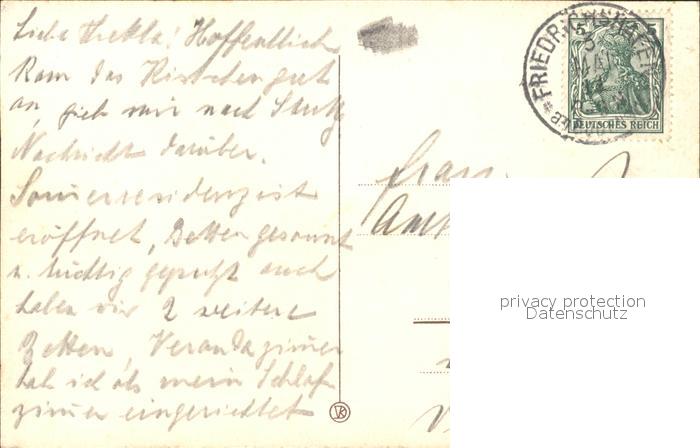 Liebe Thekla! Hoffentlich
kam das Kistchen gut
an, gieb mir nach Stuttg
Nachricht darüber.
Sommerresidenz ist
eröffnet, Betten gesonnt
u. tüchtig geputzt auch
haben wir 2 weitere
Betten, Verandazimmer
hab ich als mein Schlaf
zimmer eingerichtet
FRIEDRICHSHAFEN
5 5
DEUTSCHES REICH
Frau
Amt
privacy protection
Datenschutz